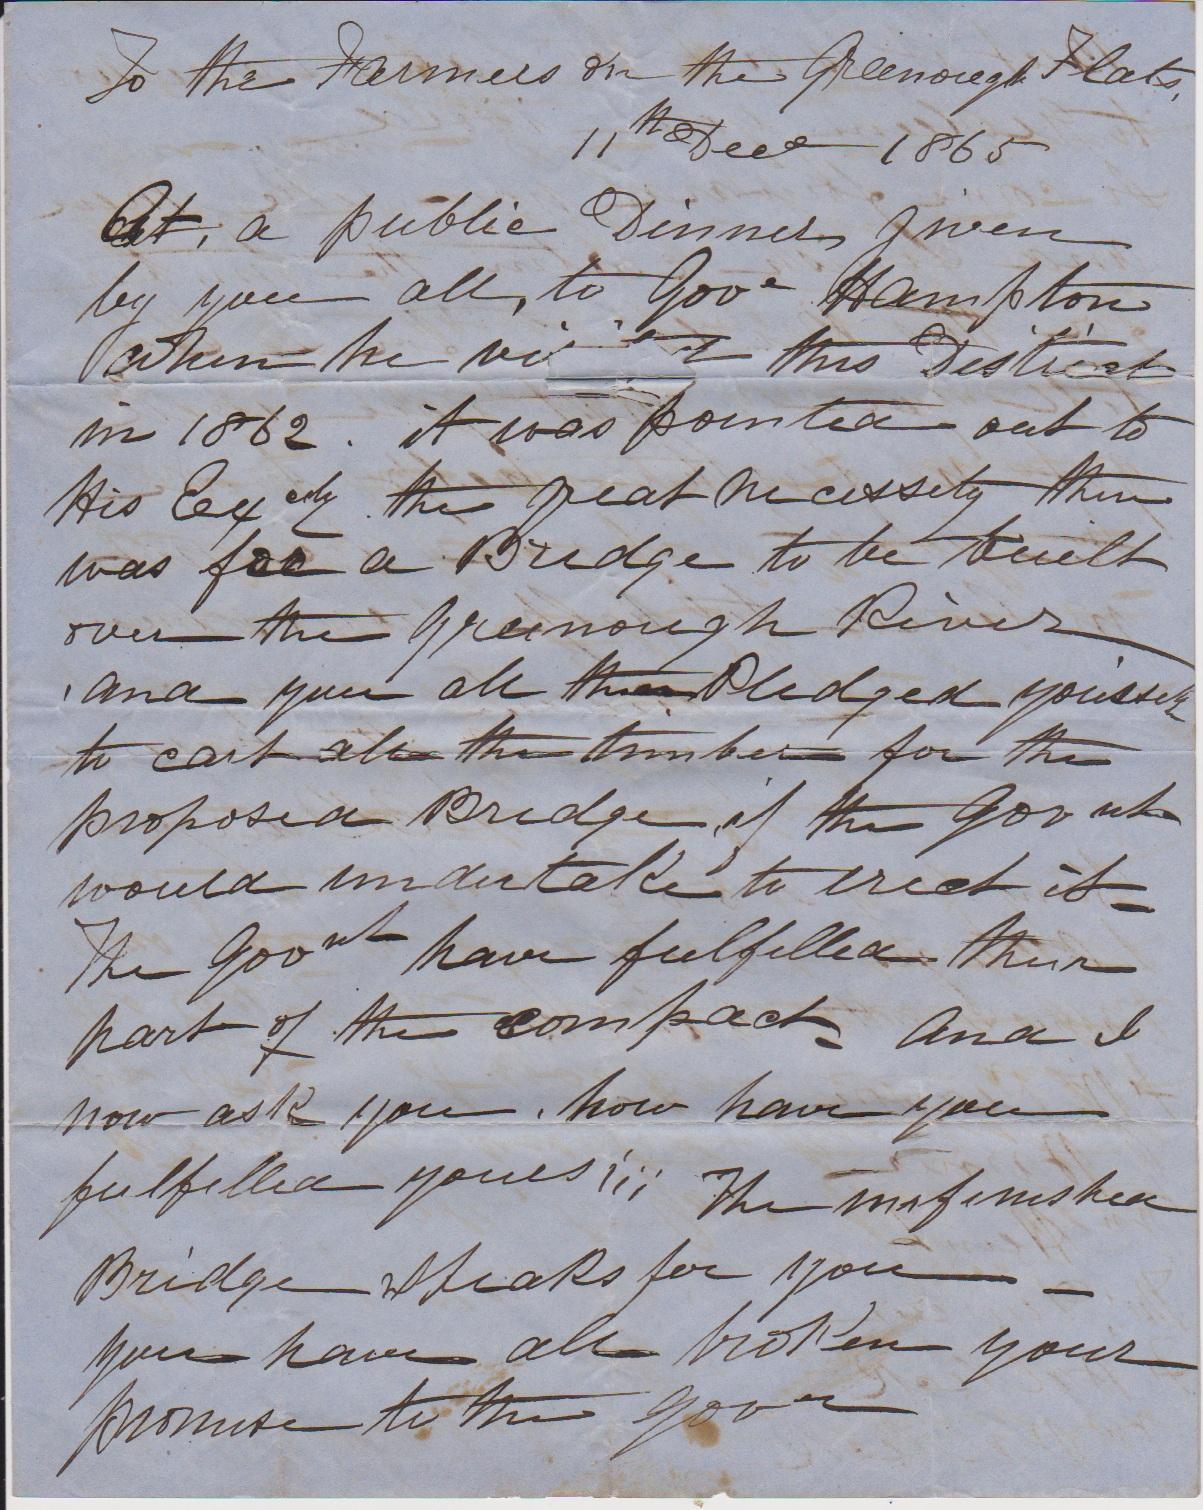 To the Farmers on the Greenough Flats,
11th Decr 1865
At, a public Dinner, given
by you all, to Govr Hampton
when he this District
in 1862. it was pointed out to
His Exely the great necessety there
was for a Bridge to be built
over the Greenough River
and you all then Pledged
to cart all the timber for the
proposed Bridge, if the Govnt
would undertake to erect it -
The Govnt have fulfilled their
part of the compact - And I
now ask you, how have you
fulfilled yours!!! The unfinished
Bridge Speaks for you -
you have all broken your
promise to the Govr